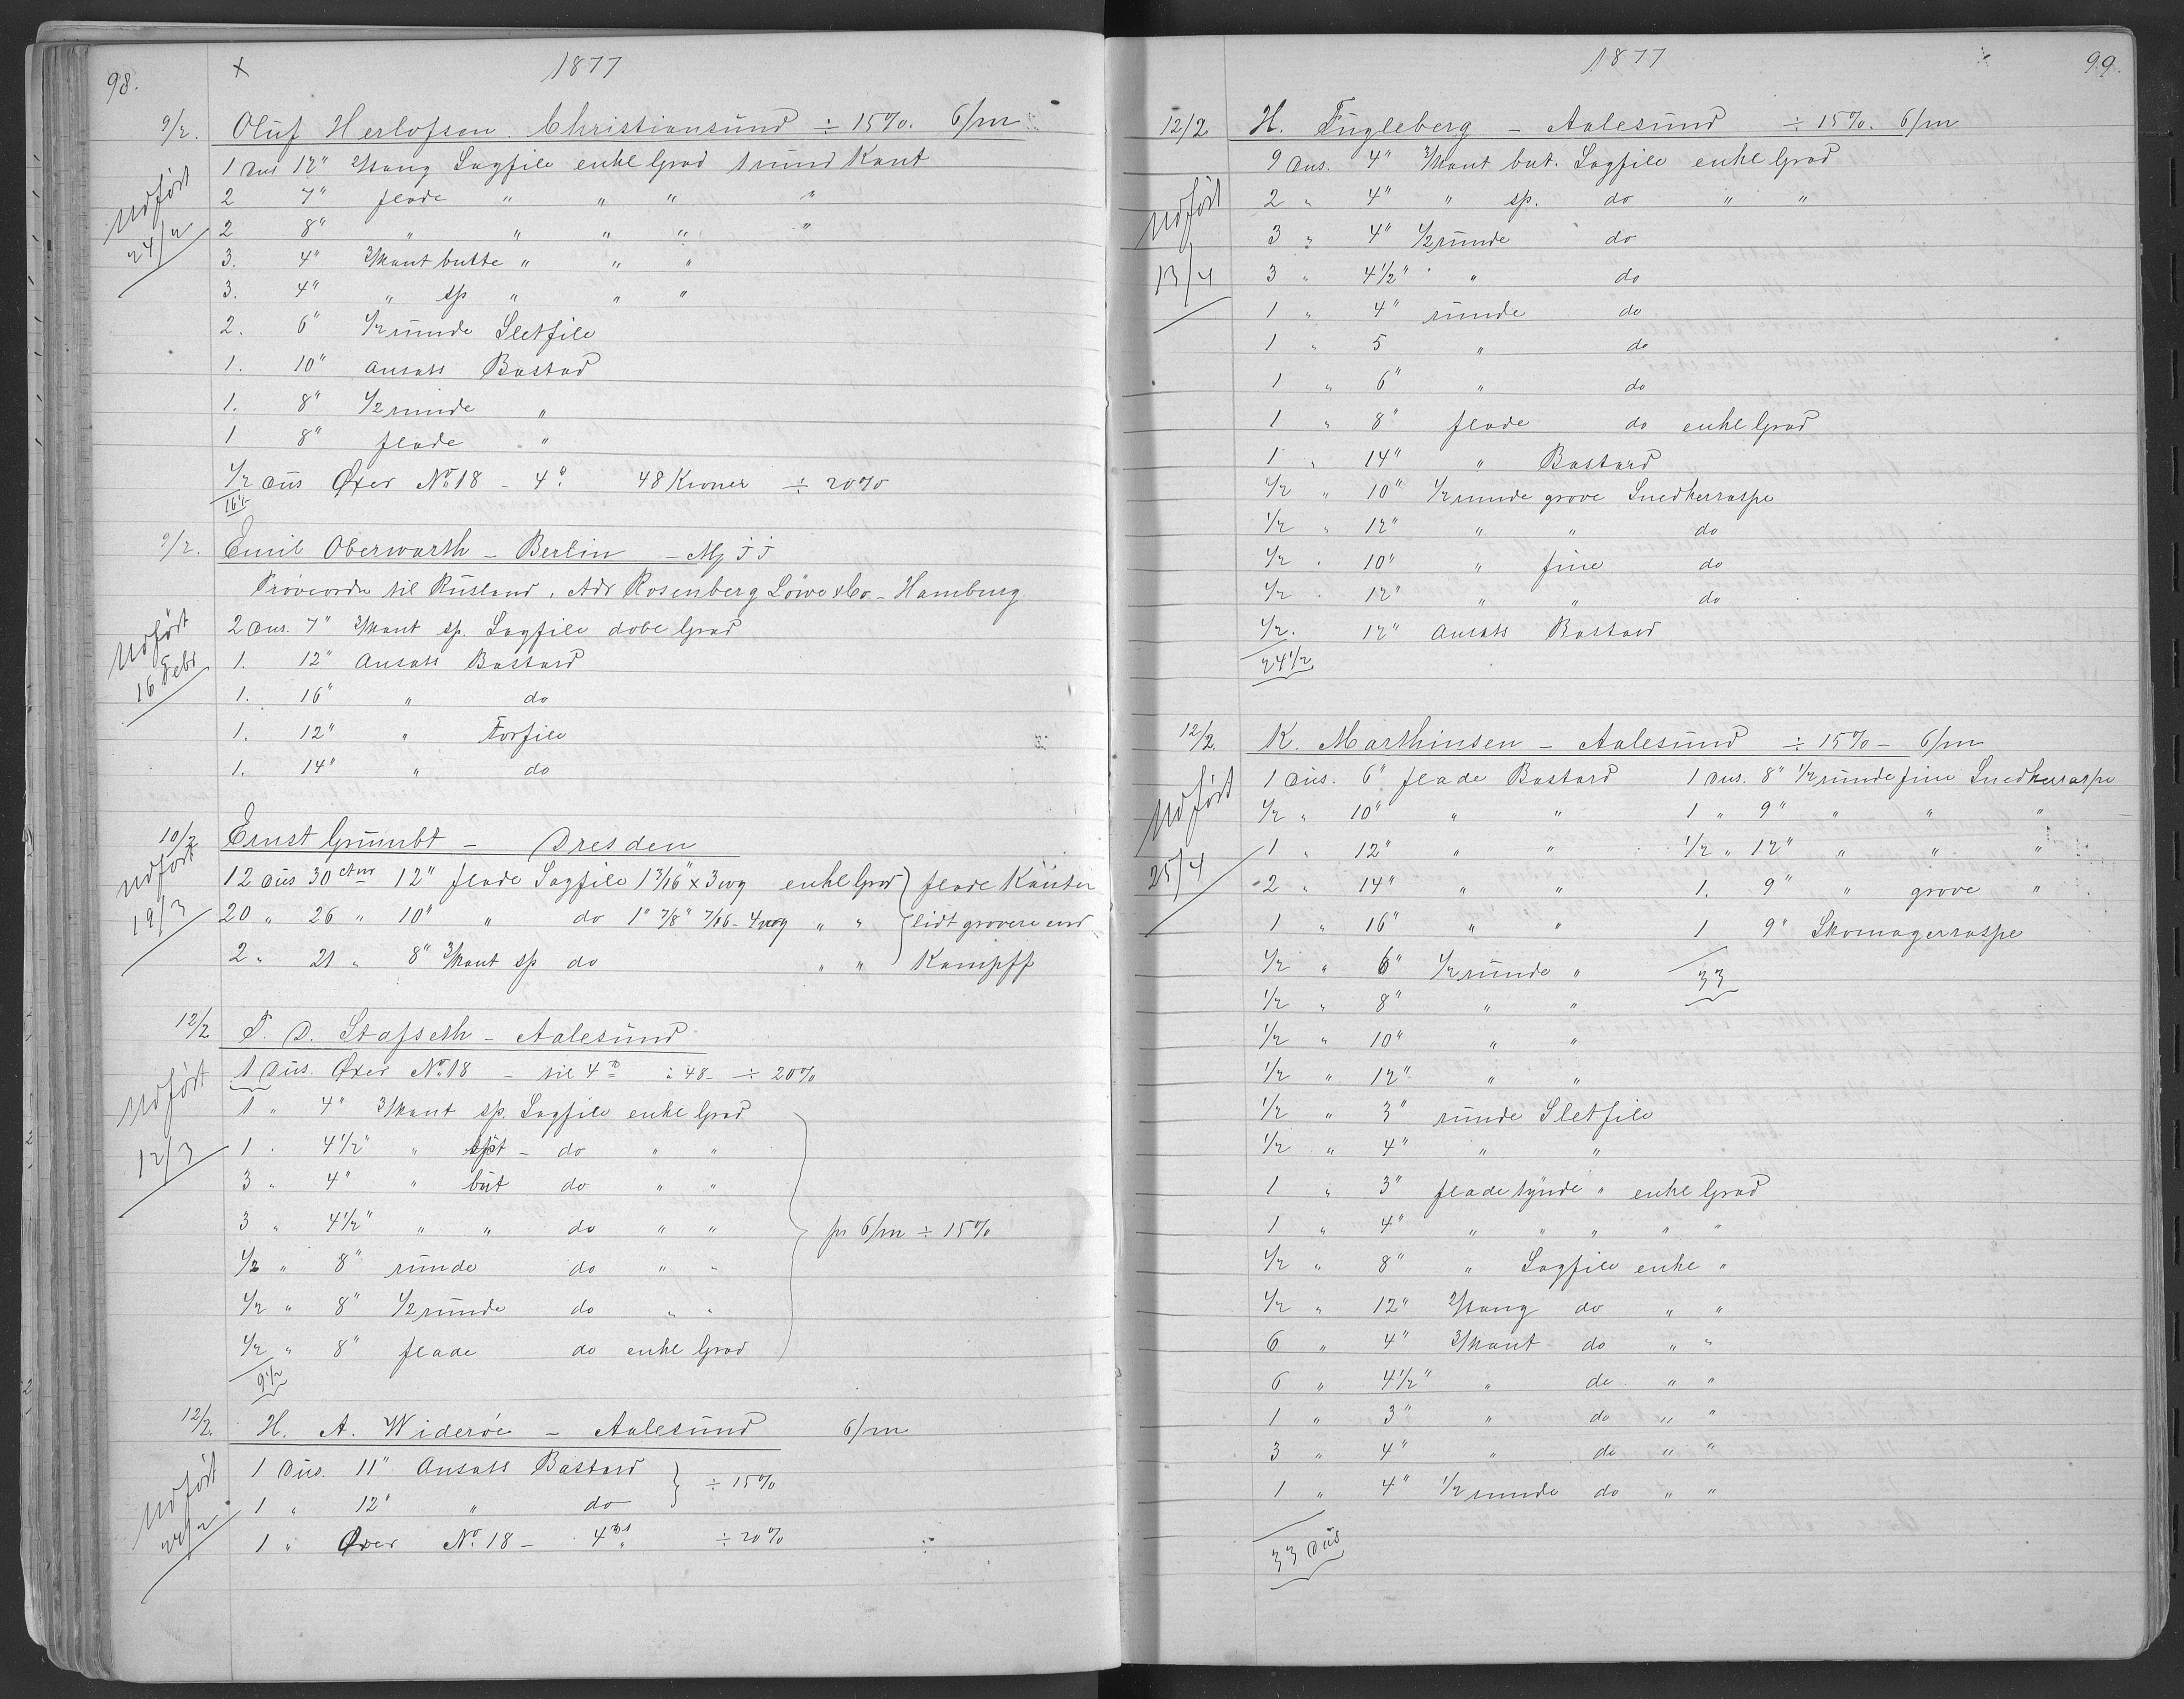 98.
x
1877
9/2.
Oluf Herlofsen. Christiansund ÷ 15%. 6/m
1 Dus 12" 2/tang Sagfile enkl Grad 1 rund Kant
Udført
24/2
2 7" flade " " " "
2 8" " " " " "
3. 4" 3/kant butte " " "
3. 4" " sp " " "
2. 6" 1/2 runde Sletfile
1. 10" Ansats Bastad
1. 8" 1/2 runde "
1 8" flade "
1/2 Dus Øxer No 18 - 4" 48 Kroner ÷ 20%
16½
9/2.
Emil Oberwarth - Berlin - Mj JJ
Prøveordre til Rusland, Adr Rosenberg Löwe & Co - Hamburg
Udført
16 Febr
2 Dus. 7" 3/kant sp. Sagfile dobl Grad
1. 12" Ansats Bastard
1. 16" " do
1. 12" " Forfile
1. 14" " do
10/2
Ernst Grumbt - Dresden
Udført
19/3
12 Dus 30 ctm 12" flade Sagfile 1 3/16" x 3 wg enkl Grad } flade Kanter
20 " 26 " 10" " do 1" 7/8" 7/16 - 4 wg " " } lidt grovere end
2 " 21 " 8" 3/kant sp do " " } Kampff
12/2
P. D. Stafseth - Aalesund
Udført
12/3
1 Dus. Øxer No 18 - til 4" à 48 - ÷ 20%
1 " 4" 3/kant sp. Sagfile enkl Grad
1 . 4½" " spt - do " "
3 " 4" " but do " "
3 " 4½" " " do " " pr 6/m ÷ 15%
½ " 8" runde do " "
½ " 8" 1/2 runde do " "
½ " 8" flade do enkl Grad
9½
12/2.
H. A. Widerøe - Aalesund 6/m
Udført
24/2
1 Dus. 11" Ansats Bastard } ÷ 15%
1 " 12" " do }
1 " Øxer No 18 - 4" ÷ 20%
1877
99.
12/2.
H. Fugleberg - Aalesund ÷ 15%. 6/m
Udført
13/4
9 Dus. 4" 3/kant but. Sagfile enkl Grad
2 " 4" " sp. do " "
3 " 4" 1/2 runde do
3 " 4½" " do
1 " 4" runde do
1 " 5 " do
1 " 6" " do
1 " 8" flade do enkl Grad
1 " 14" " Bastard
½ " 10" 1/2 runde grove Snedkerraspe
½ " 12" " " do
½ . 10" " fine do
½ . 12" " " do
½. 12" Ansats Bastard
24½
12/2.
K. Marthinsen - Aalesund ÷ 15% - 6/m
Udført
25/4
1 Dus. 6" flade Bastard 1 Dus. 8" 1/2 runde fine Snedkerraspe
½ " 10" " " 1 " 9" " " "
1 " 12" " " ½ " 12" " " "
2 " 14" " " 1. 9" " grove "
1 " 16" " " 1 9" Skomagerraspe
½ " 6" 1/2 runde " 33
½ " 8" " "
½ " 10" " "
½ " 12" " "
½ " 3" runde Sletfile
½ " 4" " "
1 " 3" flade tynde " enkl Grad
1 " 4" " " " " "
½ " 8" " Sagfile enkl "
½ " 12" 2/tang do " "
6 " 4" 3/kant do " "
6 " 4½" " do " "
1 " 3" " do " "
3 " 4" " do " "
1 " 4" 1/2 runde do " "
33 Dus